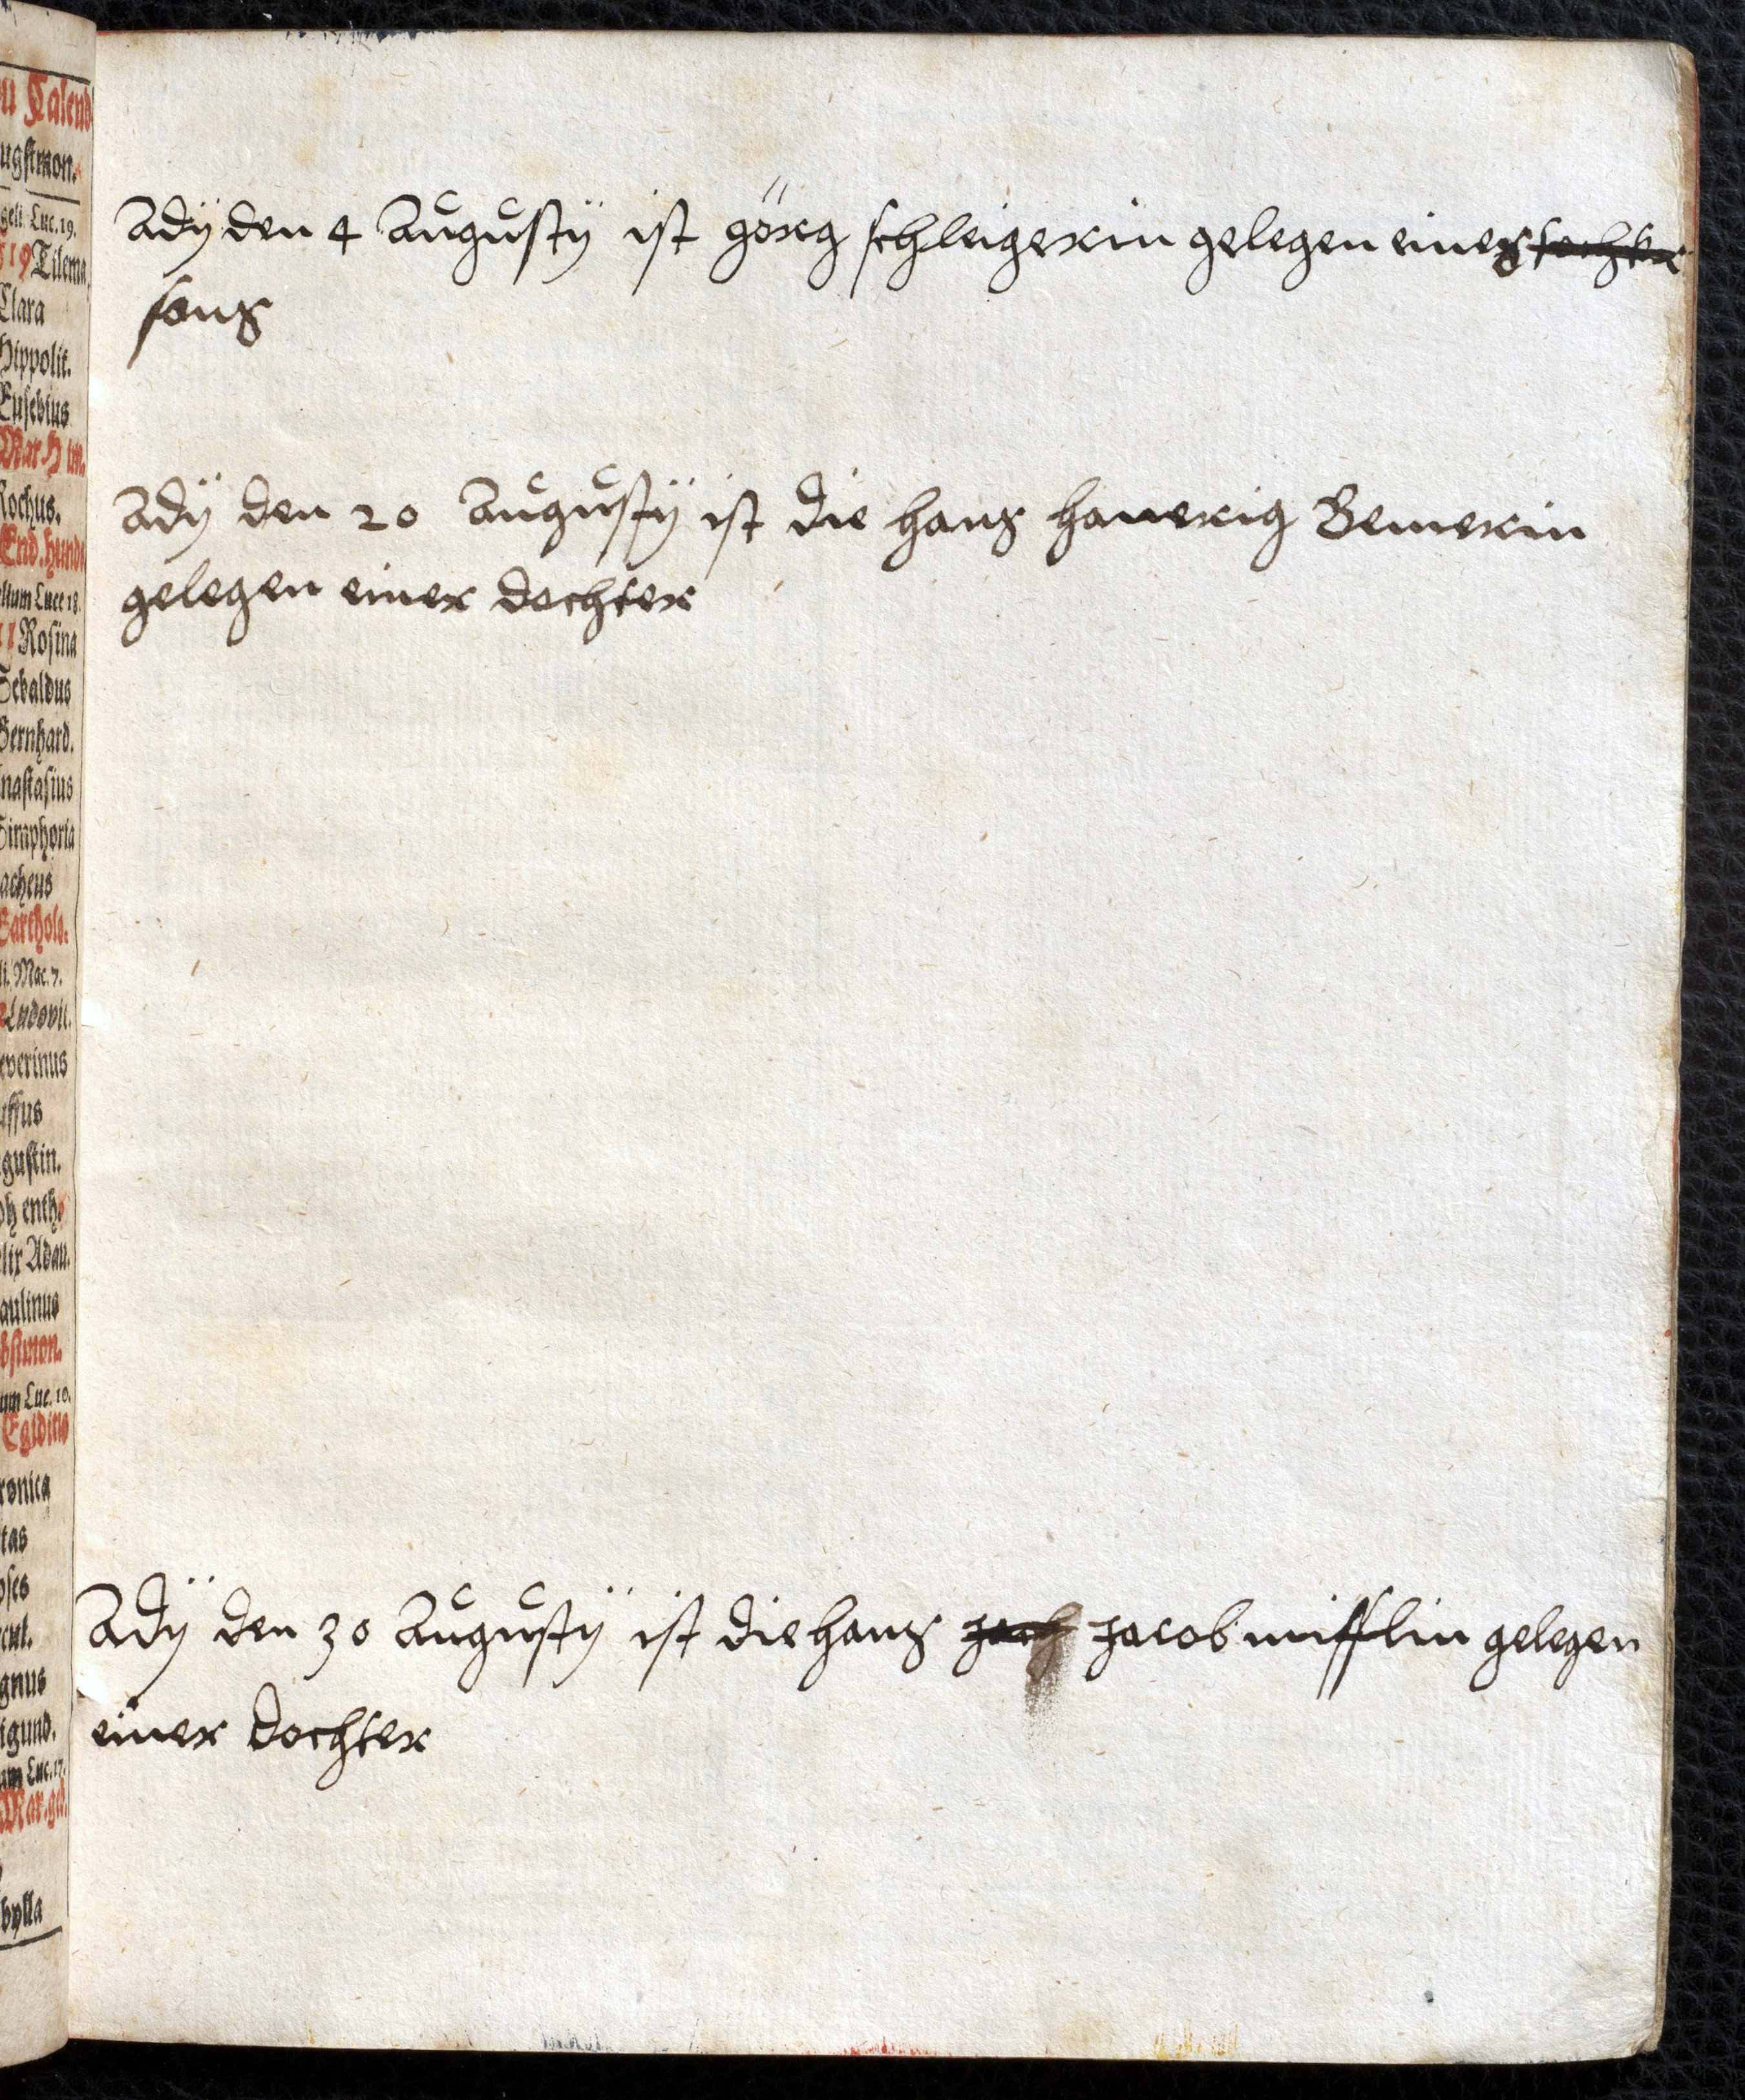 u Calend
ugstmon.
geli. Luc. 19.
19 Tilema
Clara
Hippolit.
Eusebius
Mar. H im.
Rochus.
End. hunds
lium Luce 18.
11 Rosina
Sebaldus
Bernhard.
nastasius
Simphoria
acheus
Barthole.
li. Mac. 7.
Ludovii.
everinus
uffus
gustin.
oh enth.
lix Adau.
aulinus
bstmon.
um Luc. 10.
Egidius
ronica
tas
oses
cul.
gnus
igund.
um Luc. 17.
Mar. geb.
bylla
Adÿ den 4 Augustÿ ist görg schleigerin gelegen eines tochter
sons
Adÿ den 20 Augustÿ ist die hans hanerig Bemerin
gelegen einer dochter
Adÿ den 30 Augustÿ ist die hans jacob mifflin gelegen
einer dochter